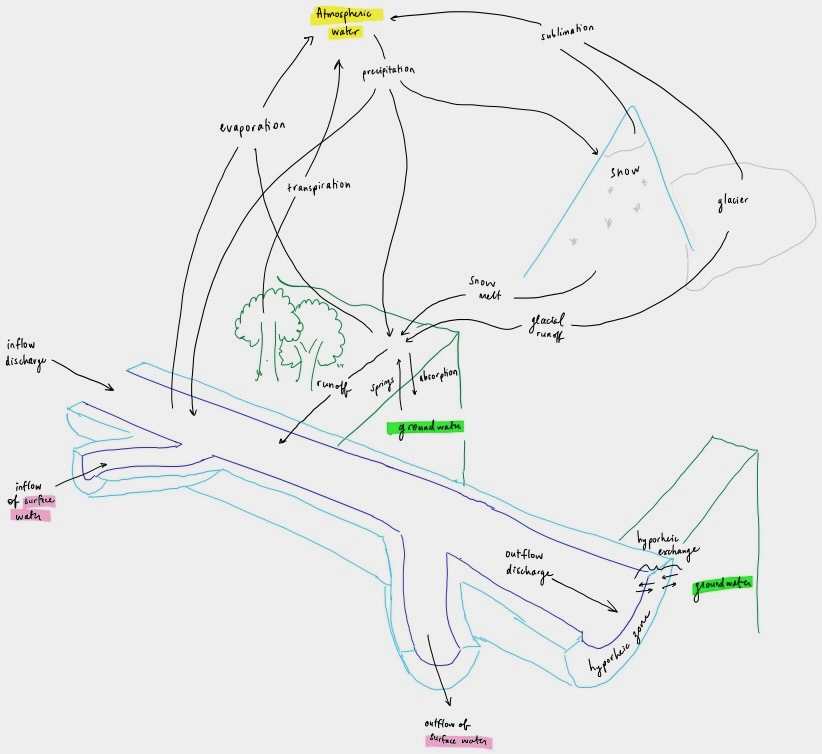 Atmospheric
water
sublimation
precipitation
evaporation
transpiration
snow
glacier
snow
melt
glacial
runoff
inflow
discharge
runoff
springs
absorption
groundwater
inflow
of surface
water
hyporheic
exchange
outflow
discharge
groundwater
hyporheic zone
outflow of
surface water